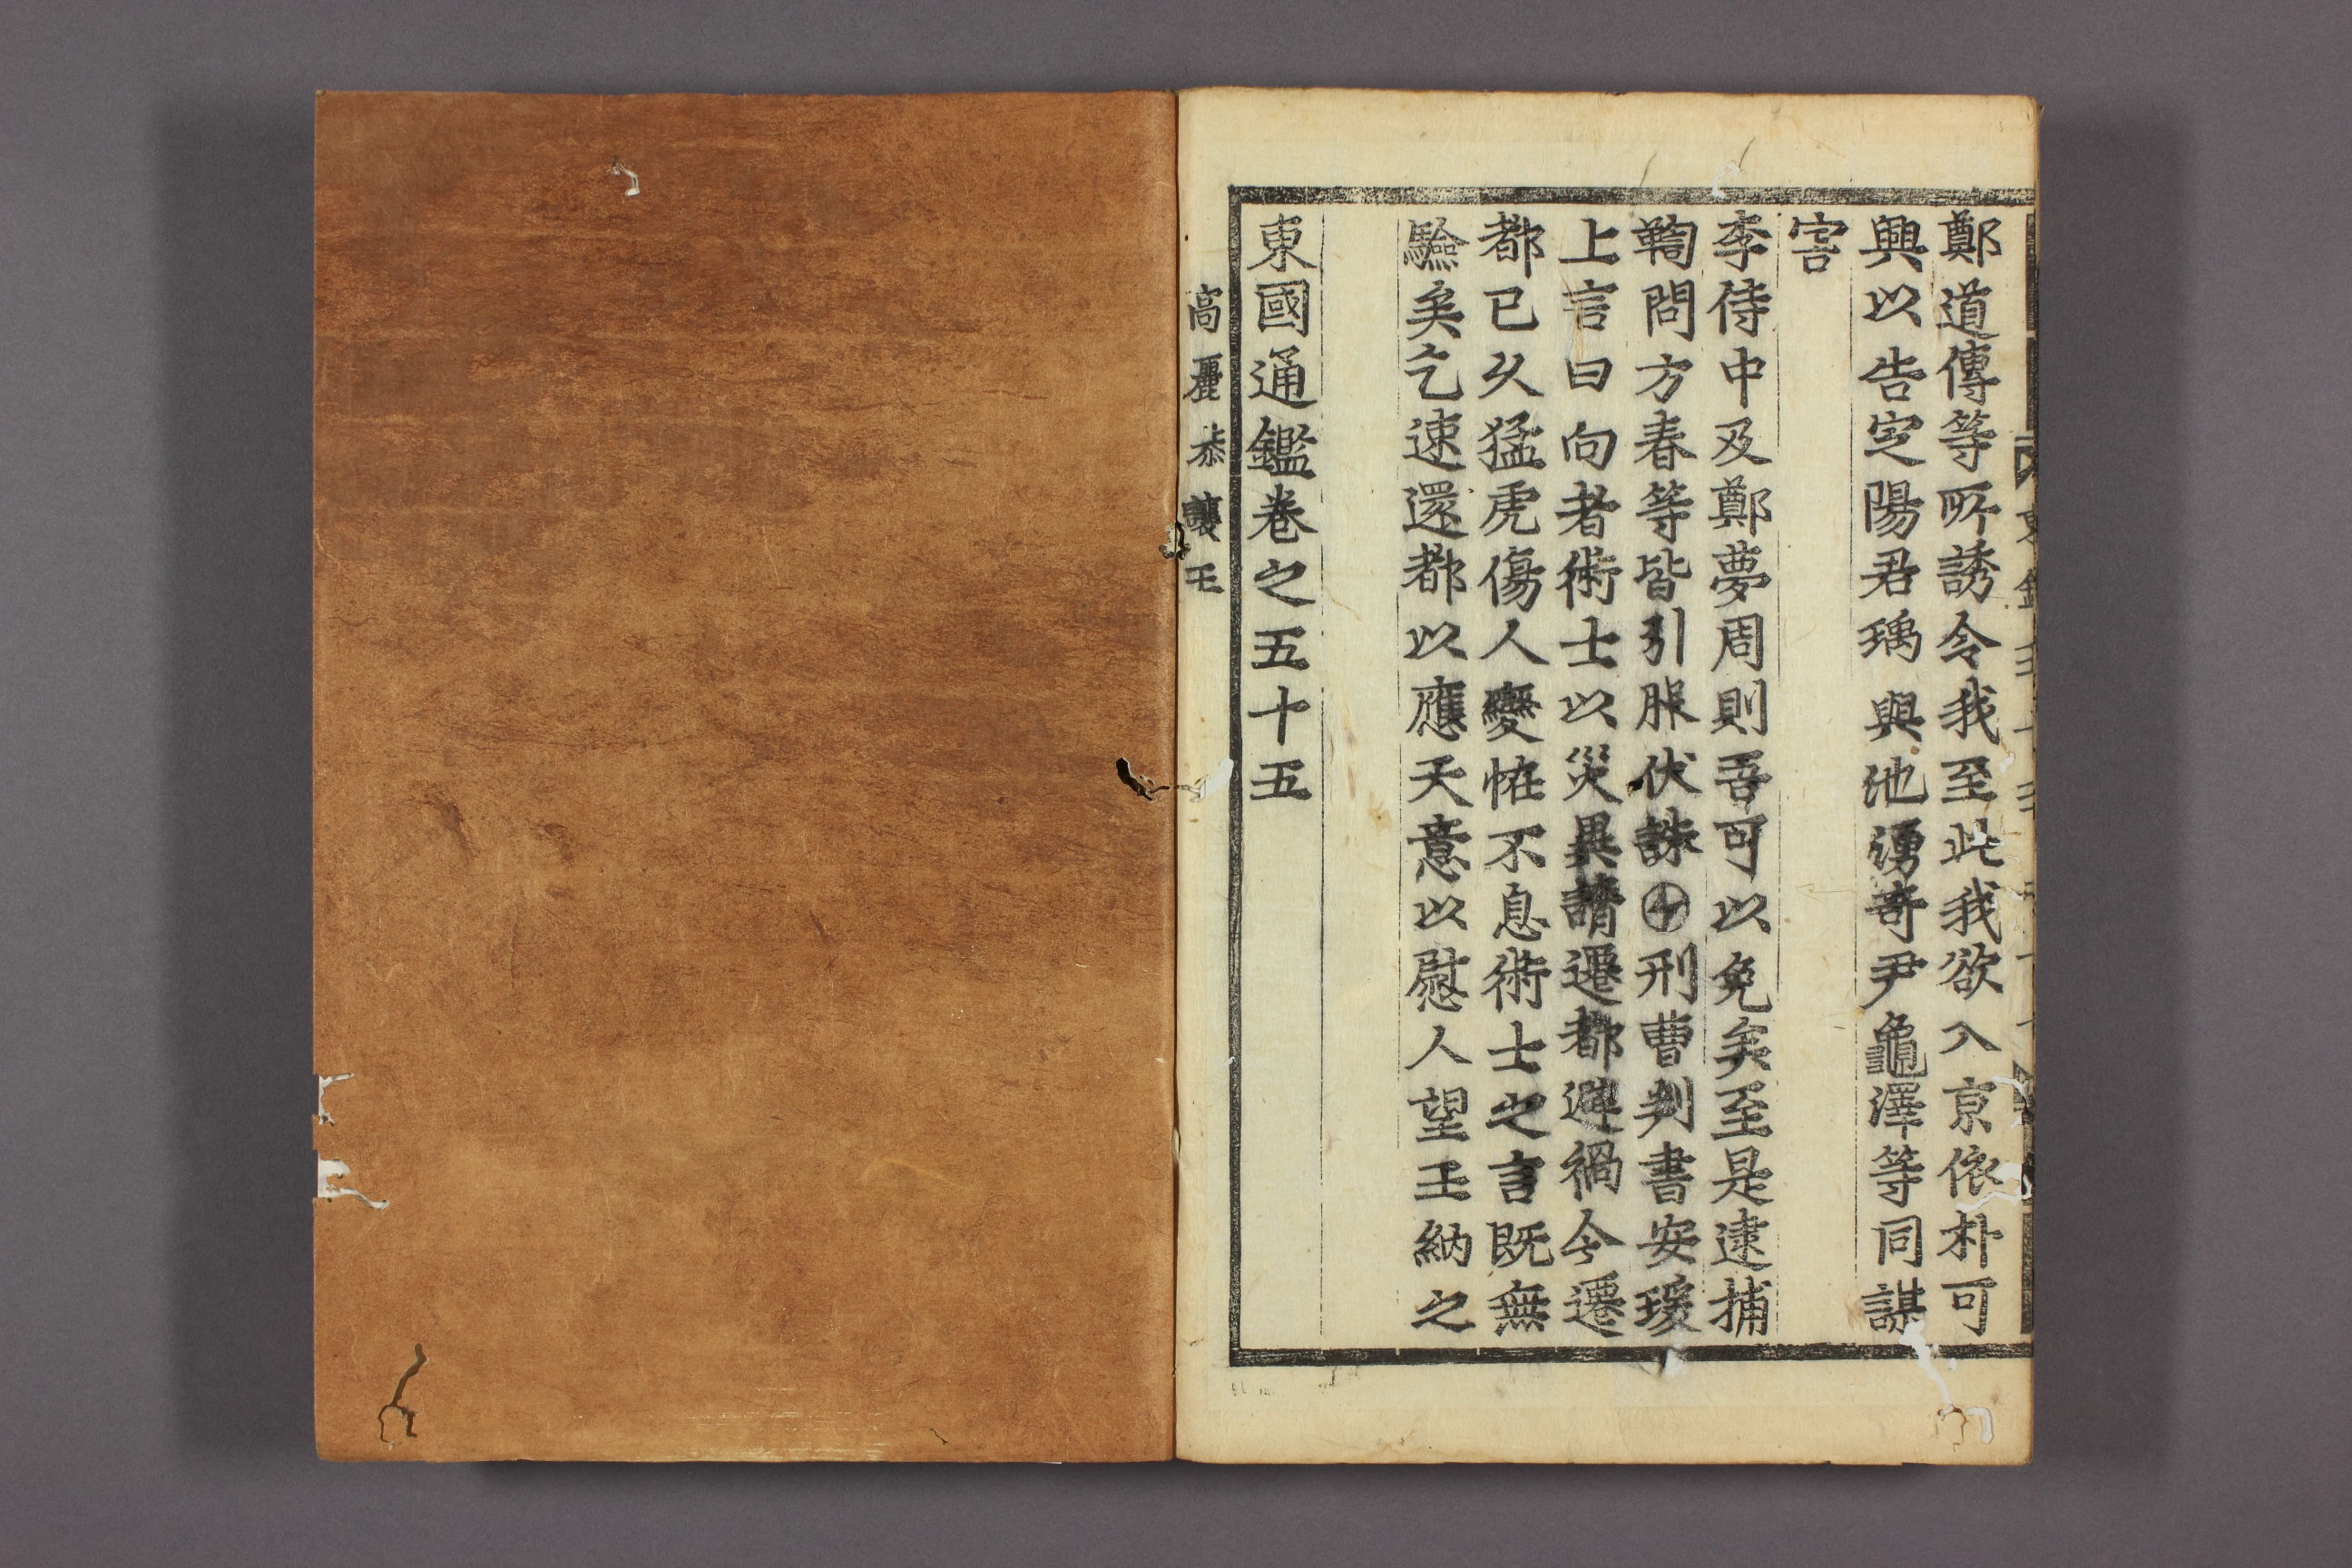 鄭道傳等所誘令我至此我欲入京依朴可
興以告定陽君瑀與池湧奇尹龜澤等同謀
害
李侍中及鄭夢周則吾可以免矣至是逮捕
鞫問方春等皆引服伏誅㊉刑曹判書安瑗
上言曰向者術士以災異請遷都避禍今遷
都已久猛虎傷人變恠不息術士之言旣無
驗矣乞速還都以應天意以慰人望王納之
東國通鑑卷之五十五
高麗恭讓王